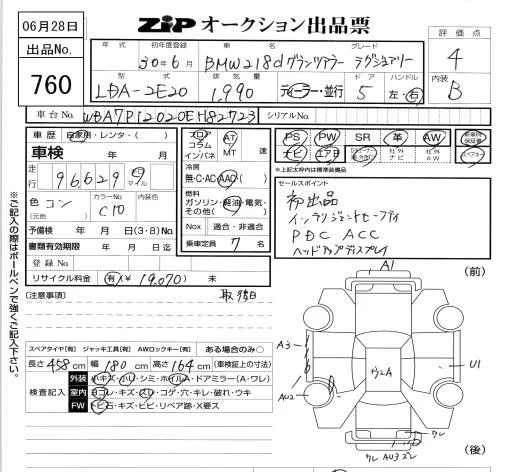 06月28日
ZiP オークション出品票
出品No.
760
年式
初年度登録 30年6月
車名 BMW218dグランツアラー
グレード ラグジュアリー
評価点 4
型式 LDA-2E20
排気量 1,990
ディーラー・並行
ドア 5
ハンドル 左・右
内装 B
車台No. WBA7P12020EH82723
シリアルNo.
車歴 自家用・レンタ・( )
車検 年 月
走行 96,629 キロ マイル
色 コン
(元色)
カラーNo. C10
内装色
予備検 年 月 日(3・8)No.
書類有効期限 年 月 日迄
登録No.
リサイクル料金 有(¥19,070) 未
フロア コラム インパネ
AT MT 速
冷房
無・C・AC・AAC( )
燃料
ガソリン・軽油・電気・その他( )
Nox 適合・非適合
乗車定員 7 名
PS PW SR 革 AW
ナビ エアB 社外ナビ 社外AW
新車時保証書
スペアキー
※上記太枠内は標準装備品
セールスポイント
初出品
インテリジェントセーフティ
PDC ACC
ヘッドアップディスプレイ
(注意事項) 取 後日
スペアタイヤ[有] ジャッキ工具[有] AWロックキー[有] ある場合のみ○
長さ 458 cm 幅 180 cm 高さ 164 cm (車検証上の寸法)
検査記入
外装 小キズ・凹・シミ・ホイルA・ドアミラー(A・ワレ)
室内 ヨゴレ・キズ・スレ・コゲ・穴・キレ・破れ・ウキ
FW トビ石・キズ・ヒビ・リペア跡・X要ス
※ご記入の際はボールペンで強くご記入下さい。
A1
(前)
A3
AU2
U1
ワレ
(後)